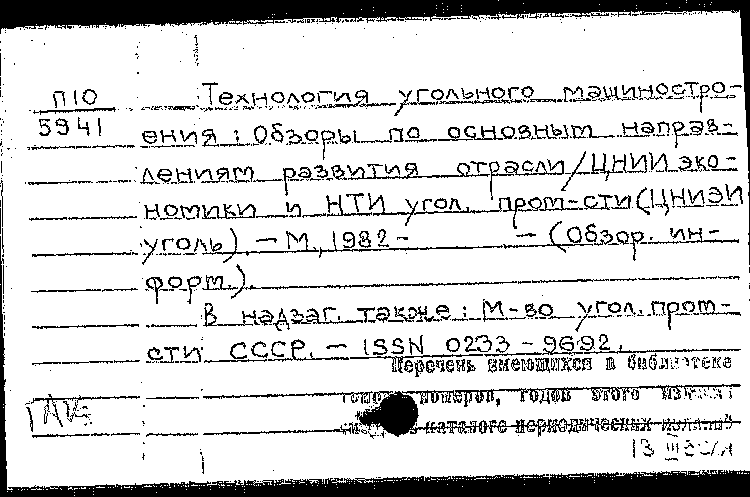 П10 Технология угольного машиностро-
5941 ения : Обзоры по основным направ-
лениям развития отрасли/ЦНИИ эко-
номики и НТИ угол. пром-сти(ЦНИЭИ
уголь). — М., 1982 - — (Обзор. ин-
форм.).
В надзаг. также : М-во угол. пром-
сти СССР. — ISSN 0233-9692.
Перечень имеющихся в библиотеке
номеров, годов этого
каталоге периодических изданий
13 III